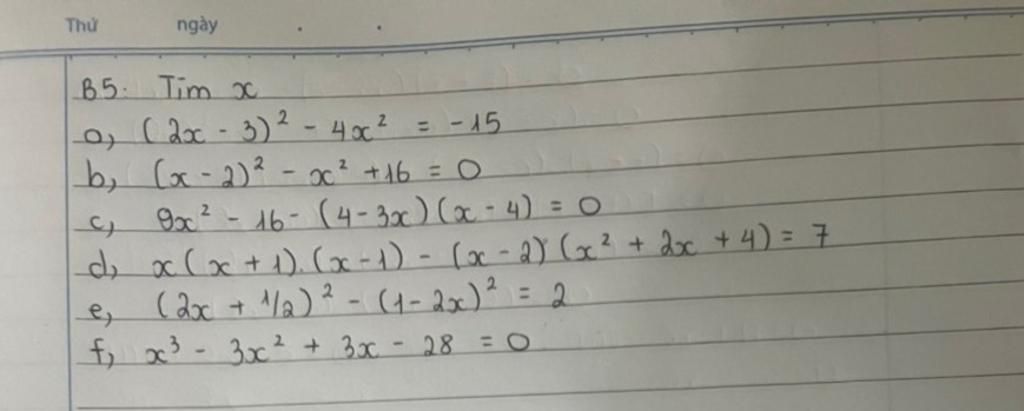 Thứ ngày . .
B5: Tìm x
a, (2x - 3)² - 4x² = -15
b, (x - 2)² - x² + 16 = 0
c, 9x² - 16 - (4 - 3x)(x - 4) = 0
d, x(x + 1).(x - 1) - (x - 2)(x² + 2x + 4) = 7
e, (2x + 1/2)² - (1 - 2x)² = 2
f, x³ - 3x² + 3x - 28 = 0